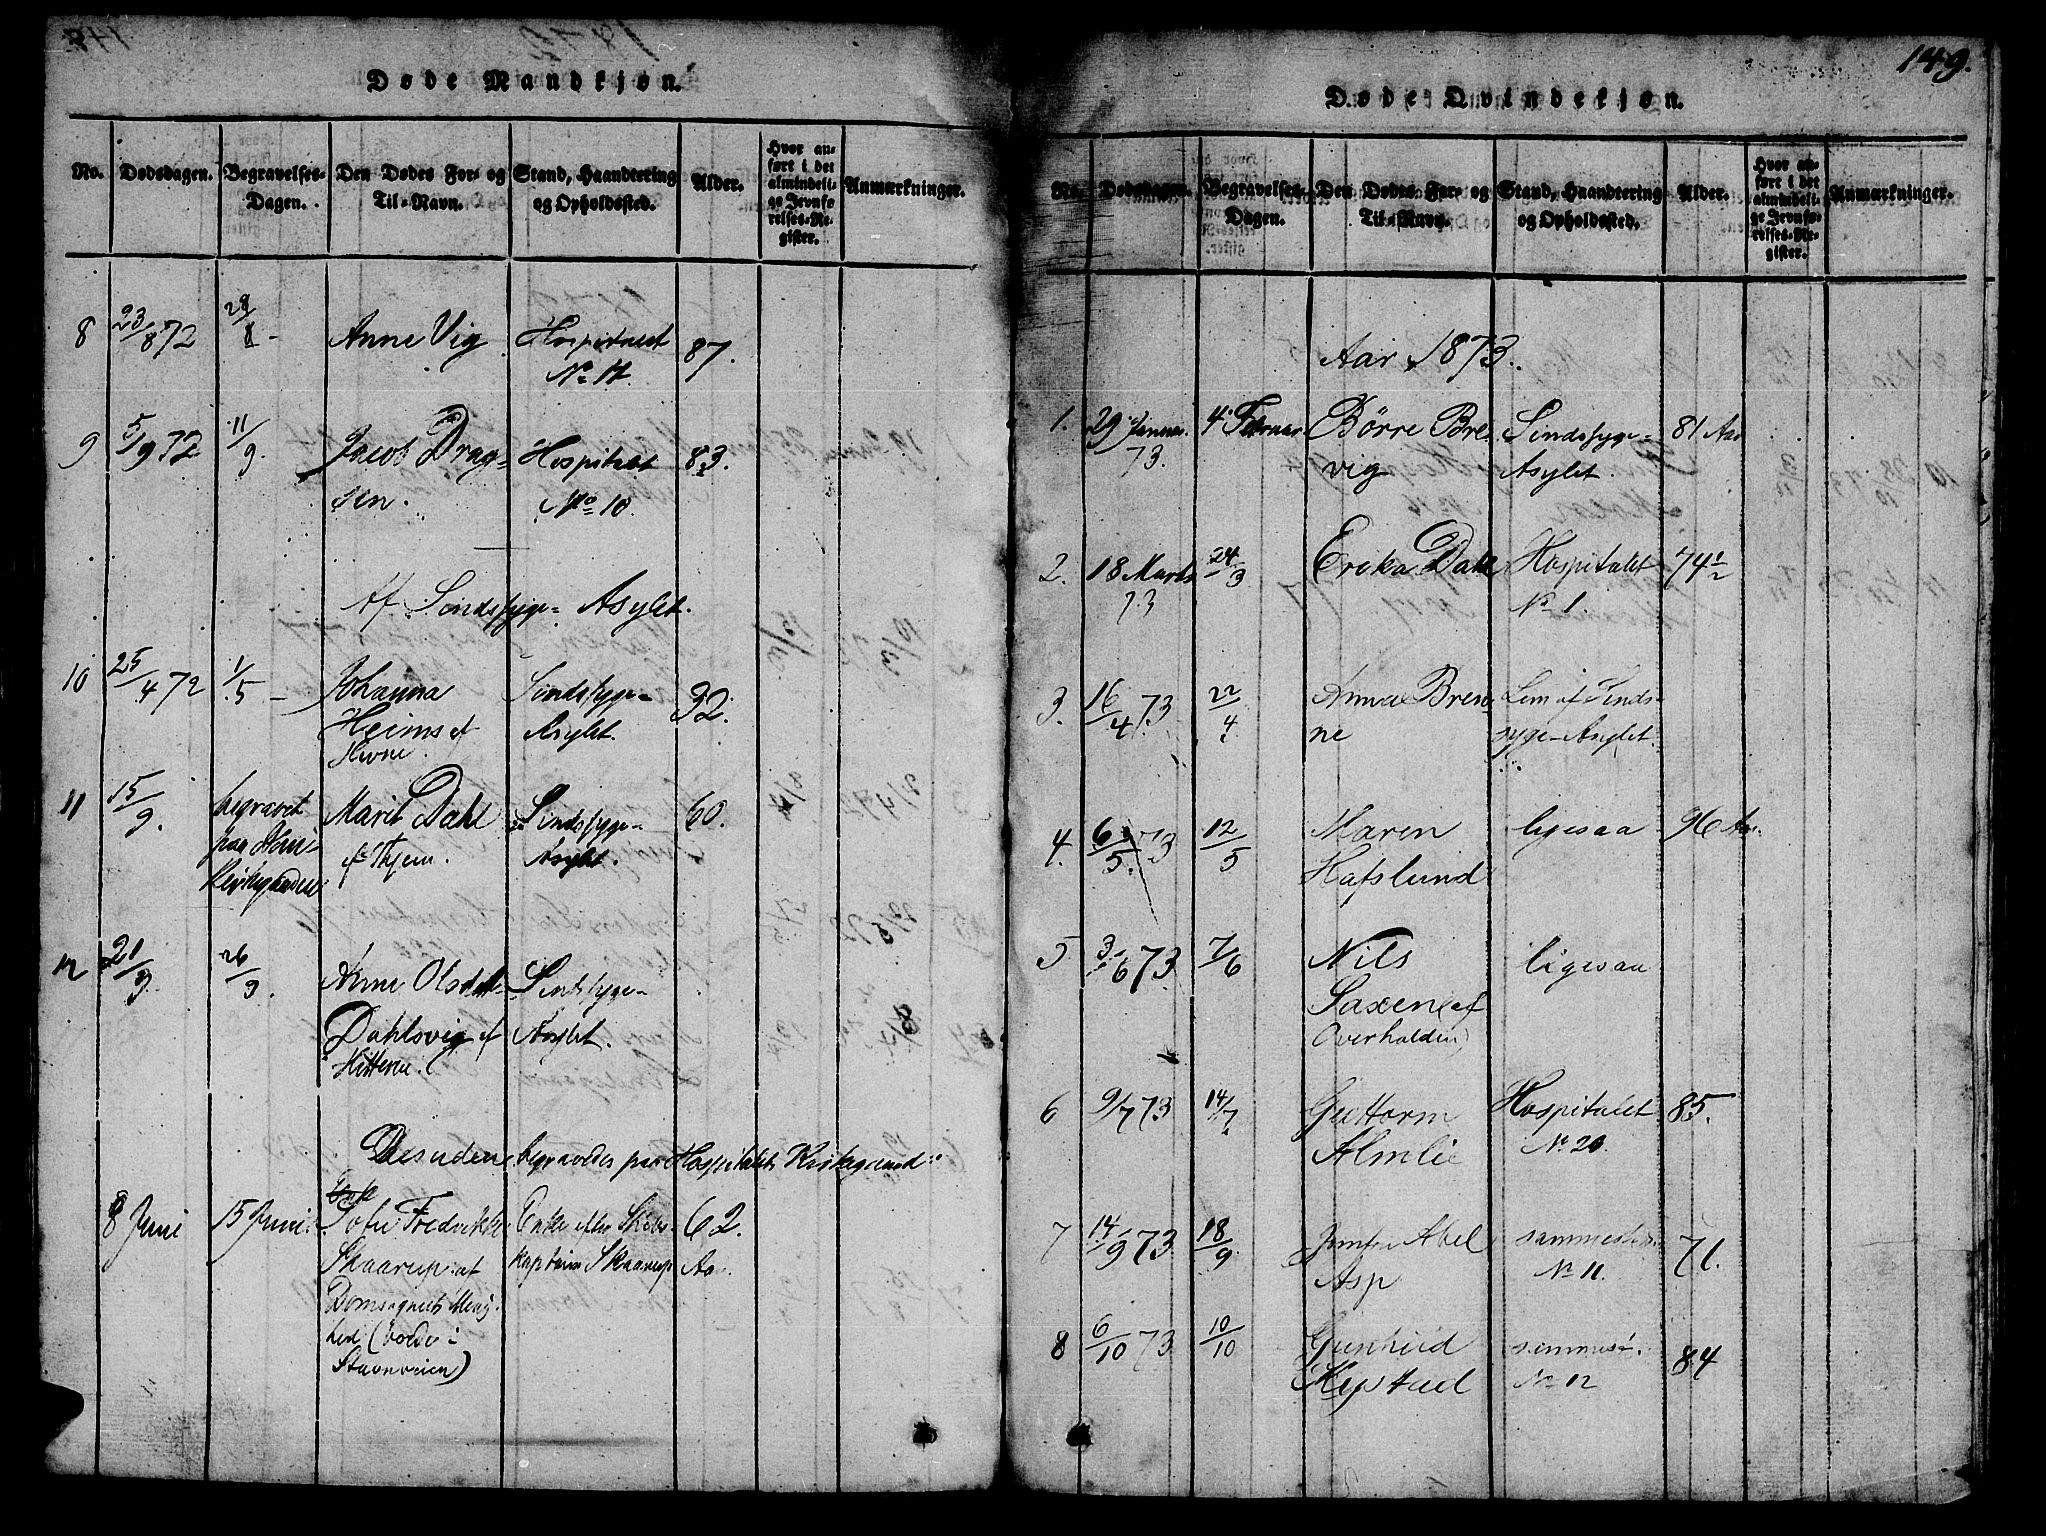 Døde Mandkjøn.
No. Dødsdagen. Begravelses-Dagen. Den Dødes For- og Til-Navn. Stand, Haandtering og Opholdssted. Alder. Hvor anført i det almindelige Jevnførelses-Register. Anmærkninger.
8 23/8 72 29/8 - Anne Vig Hospitalet 87.
No 17.
9 5/9 72 11/9. Jacob Drag- Hospitalet 83.
sen. No 10.
Af Sindssyge-Asylet.
10 25/4 72 1/5 - Johanna Sindssyge- 32.
Heims af Asylet.
Hevne.
11 15/9. begravet Marit Dahl Sindssyge- 60.
paa Asylet.
12 21/9. 26/9. Anne Sindssyge-
Dahlsvig af Asylet.
Hitteren.
Desuden begravedes paa Hospitalets
8 Juni 15 Juni. Sofie Fredrikke Enke efter Skibs- 62.
Skaarup af kaptein Skaarup Aa
Domsognets Menig-
hed (boede i
Stavnveien)
149.
Døde Qvindekjøn.
No. Dødsdagen. Begravelses-Dagen. Den Dødes For- og Til-Navn. Stand, Haandtering og Opholdssted. Alder. Hvor anført i det almindelige Jevnførelses-Register. Anmærkninger.
Aar 1873.
1. 29 Januar 4 Februar Børre Bre- Sindssyge- 81 Aar
73. vig Asylet.
2. 18 Marts 24/3 Erika Dahl Hospitalet 74 1/2
73 No 1.
3. 16/4 73 22/4 Anna Bren Lem af Sinds-
ne syge-Asylet.
4. 6/5. 73 12/5 Maren ligesaa 96 Aar.
Hafslund
5 3/6 73 7/6 Nils ligesaa
Saxen (af
Overhalden)
6 9/7 73 14/7 Guttorm Hospitalet 85.
Almlie No 20.
7 14/9 73 18/9. Jomfru Abel 71.
Asp No 11.
8 6/10 73 10/10 Gunhild 84
No 12